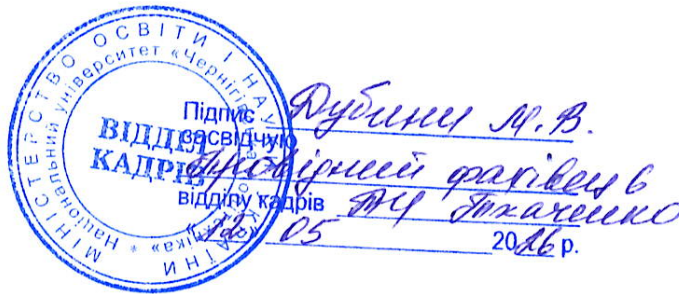 МІНІСТЕРСТВО ОСВІТИ І НАУКИ УКРАЇНИ
Національний університет «Чернігівська політехніка» *
ВІДДІЛ
КАДРІВ
Підпис Дубини М.В.
засвідчую
Провідний фахівець
відділу кадрів Ткаченко
«12» 05 2026 р.